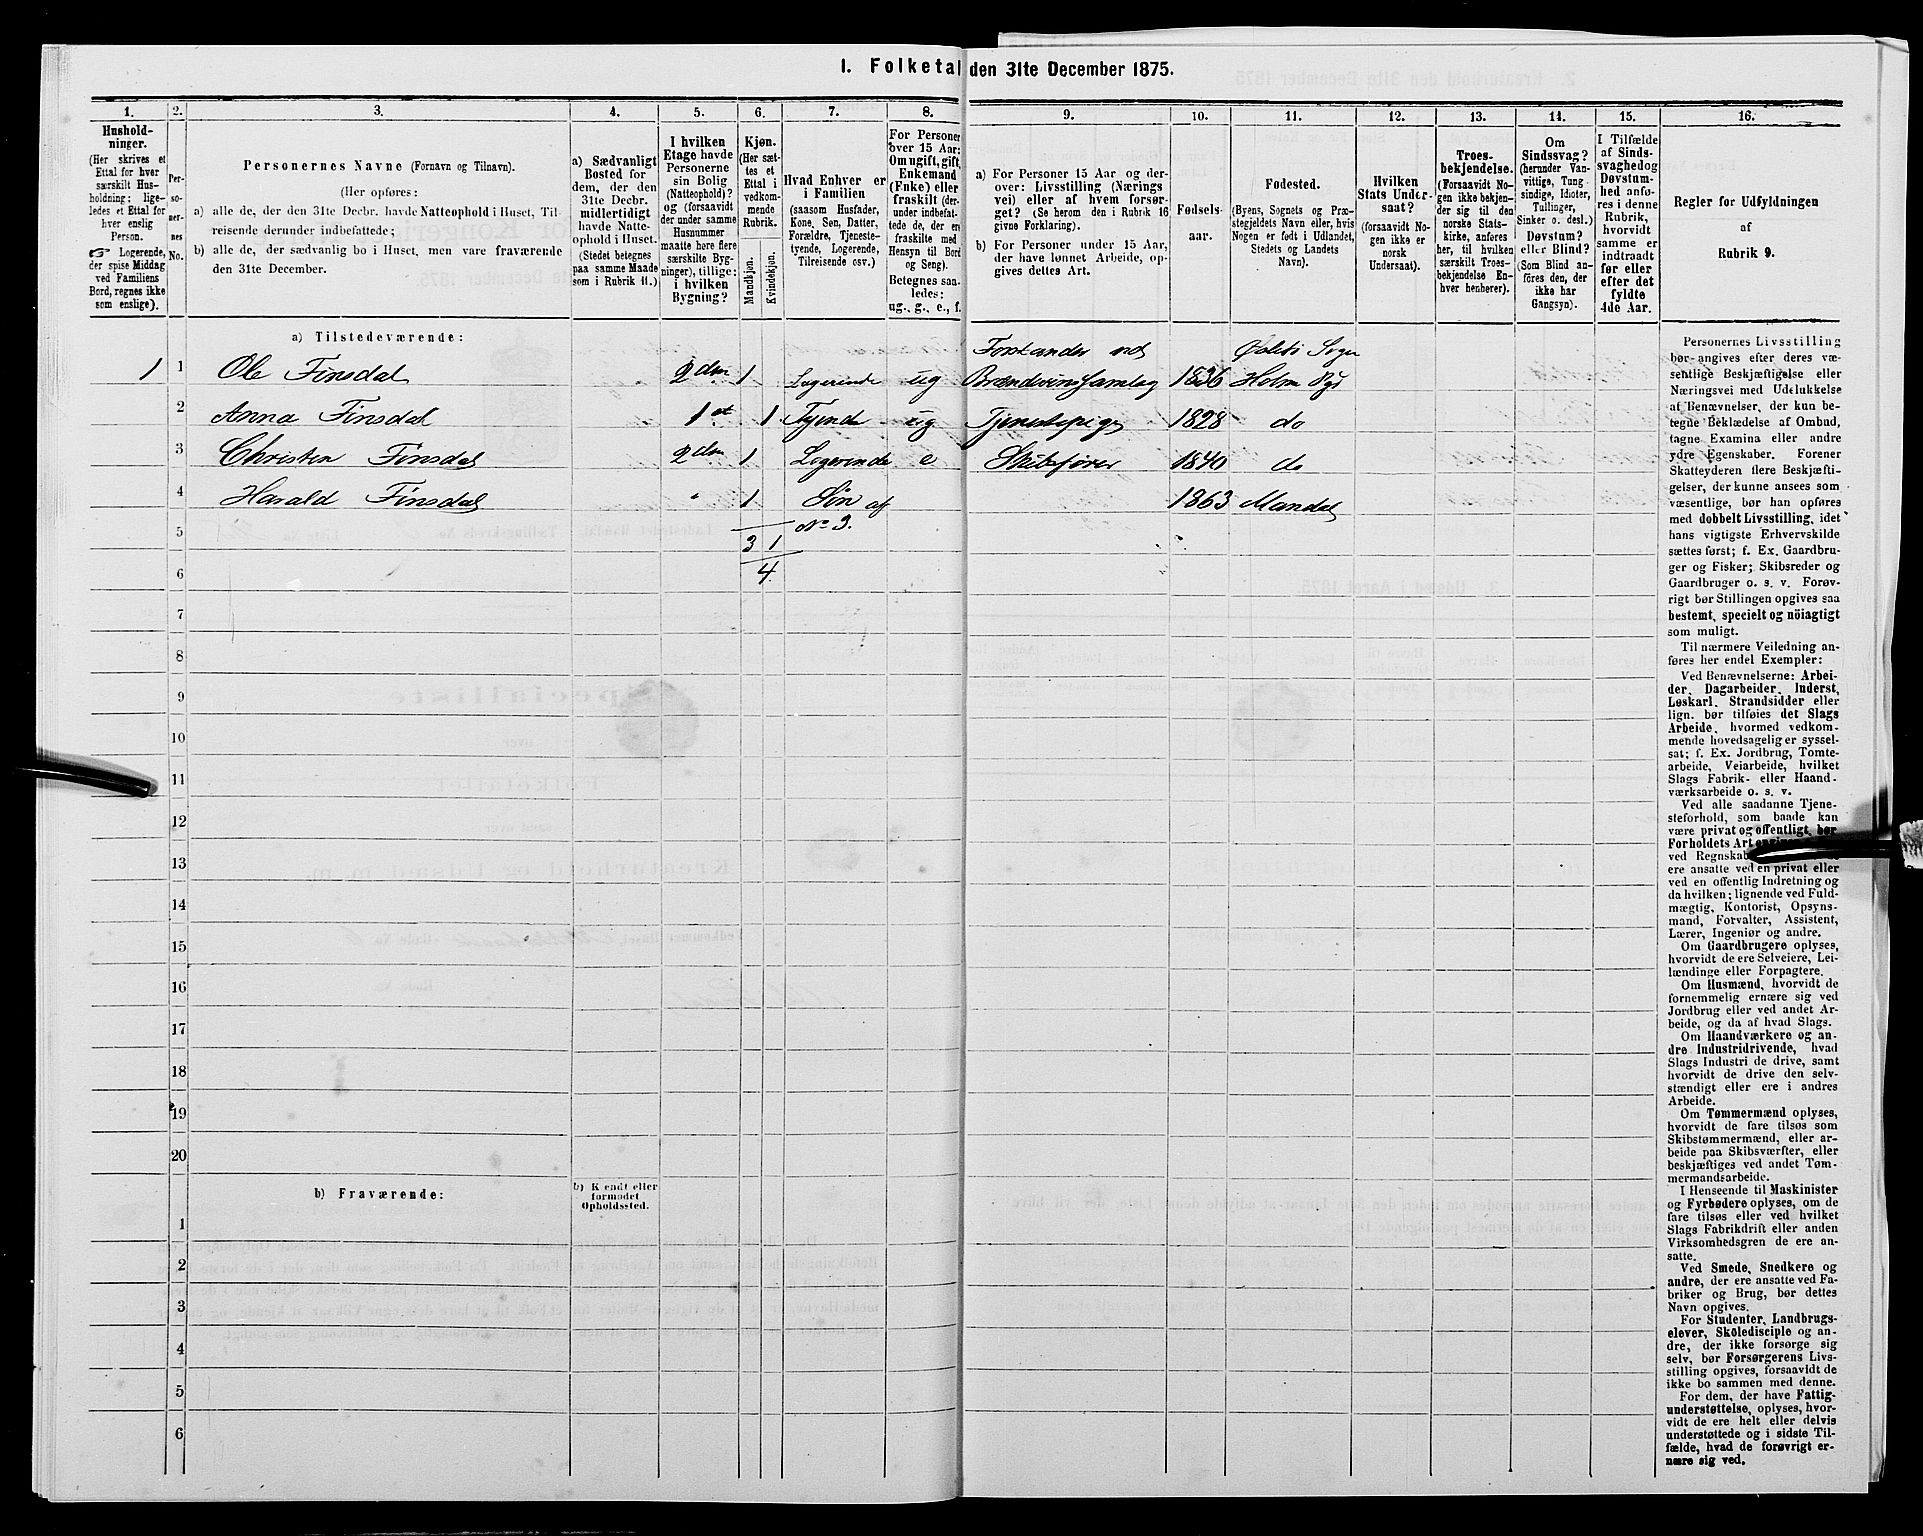 1. Folketal den 31te December 1875.
1. 2. 3. 4. 5. 6. 7. 8. 9. 10. 11. 12. 13. 14. 15. 16.
Hushold-
ninger.
(Her skrives et
Ettal for hver
særskilt Hus-
holdning; lige-
ledes et Ettal for
hver enslig
Person.
☞ Logerende,
der spise Middag
ved Familiens
Bord, regnes ikke
som enslige).
Per-
so-
ner-
nes
No.
Personernes Navne (Fornavn og Tilnavn).
(Her opføres:
a) alle de, der den 31te Decbr. havde Natteophold i Huset, Til-
reisende derunder indbefattede;
b) alle de, der sædvanlig bo i Huset, men vare fraværende
den 31te December.
a) Sædvanligt
Bosted for
dem, der den
31te Decbr.
midlertidigt
havde Natte-
ophold i Huset.
(Stedet betegnes
paa samme Maade
som i Rubrik 11.)
I hvilken
Etage havde
Personerne
sin Bolig
(Natteophold)?
og (forsaavidt
der under samme
Husnummer
maatte høre flere
særskilte Byg-
ninger), tillige:
i hvilken
Bygning?
Kjøn.
(Her sæt-
tes et
Ettal i
vedkom-
mende
Rubrik.
Mandkjøn.
Kvindekjøn.
Hvad Enhver er
i Familien
(saasom Husfader,
Kone, Søn, Datter,
Forældre, Tjeneste-
tyende, Logerende,
Tilreisende osv.)
For Personer
over 15 Aar:
Om ugift, gift,
Enkemand
(Enke) eller
fraskilt (der-
under indbefat-
tede de, der ere
fraskilte med
Hensyn til Bord
og Seng).
Betegnes saa-
ledes:
ug., g., e., f.
a) For Personer 15 Aar og der-
over: Livsstilling (Nærings
vei) eller af hvem forsør-
get? (Se herom den i Rubrik 16
givne Forklaring).
b) For Personer under 15 Aar,
der have lønnet Arbeide, op-
gives dettes Art.
Fødsels-
aar.
Fødested.
(Byens, Sognets og Præ-
stegjeldets Navn eller, hvis
Nogen er født i Udlandet,
Stedets og Landets
Navn).
Hvilken
Stats Under-
saat?
(forsaavidt No-
gen ikke er
norsk
Undersaat).
Troes-
bekjendelse.
(Forsaavidt No-
gen ikke bekjen-
der sig til den
norske Stats-
kirke, anføres
her, til hvilken
særskilt Troes-
bekjendelse En-
hver henhører).
Om
Sindssvag?
(herunder Van-
vittige, Tung
sindige, Idioter,
Tullinger,
Sinker o. desl.)
Døvstum?
eller Blind?
(Som Blind an-
føres den, der
ikke har
Gangsyn).
I Tilfælde
af Sinds-
svaghed og
Døvstum-
hed anfø-
res i denne
Rubrik,
hvorvidt
samme er
indtraadt
før eller
efter det
fyldte
4de Aar.
Regler for Udfyldningen
af
Rubrik 9.
a) Tilstedeværende:
Forstander ved Øslebø Sogn
1 1 Ole Finsdal 2den 1 Logerende ug Brændevinssamlag 1836 Holm Pgd
2 Anna Finsdal 1st 1 Tyende ug Tjenestepige 1828 do
3 Christen Finsdal 2den 1 Logerende e Skibsfører 1840 do
4 Harald Finsdal " 1 Søn af 1863 Mandal
5 3 1 No 3.
6 4
7
8
9
10
11
12
13
14
15
16
17
18
19
20
b) Fraværende:
b) Kjendt eller
formodet
Opholdssted.
1
2
3
4
5
6
Personernes Livsstilling
bør angives efter deres væ-
sentlige Beskjæftigelse eller
Næringsvei med Udelukkelse
af Benævnelser, der kun be-
tegne Beklædelse af Ombud,
tagne Examina eller andre
ydre Egenskaber. Forener
Skatteyderen flere Beskjæfti-
gelser, der kunne ansees som
væsentlige, bør han opføres
med dobbelt Livsstilling, idet
hans vigtigste Erhvervskilde
sættes først; f. Ex. Gaardbru-
ger og Fisker; Skibsreder og
Gaardbruger o. s. v. Forøv-
rigt bør Stillingen opgives saa
bestemt, specielt og nöiagtigt
som muligt.
Til nærmere Veiledning an-
føres her endel Exempler:
Ved Benævnelserne: Arbei-
der, Dagarbeider, Inderst,
Løskarl, Strandsidder eller
lign. bør tilføies det Slags
Arbeide, hvormed vedkom-
mende hovedsagelig er syssel-
sat; f. Ex. Jordbrug, Tomte-
arbeide, Veiarbeide, hvilket
Slags Fabrik- eller Haand-
værksarbeide o. s. v.
Ved alle saadanne Tjene-
steforhold, som baade kan
være privat og offentligt, bør
Forholdets Art
ved
ere ansatte ved en privat eller
ved en offentlig Indretning og
da hvilken; lignende ved Fuld-
mægtig, Kontorist, Opsyns-
mand, Forvalter, Assistent,
Lærer, Ingeniør og andre.
Om Gaardbrugere oplyses,
hvorvidt de ere Selveiere, Lei-
lændinge eller Forpagtere.
Om Husmænd, hvorvidt de
fornemmelig ernære sig ved
Jordbrug eller ved andet Ar-
beide, og da af hvad Slags.
Om Haandværkere og an-
dre Industridrivende, hvad
Slags Industri de drive, samt
hvorvidt de drive den selv-
stændigt eller ere i andres
Arbeide.
Om Tømmermænd oplyses,
hvorvidt de fare tilsøs som
Skibstømmermænd, eller ar-
beide paa Skibsværfter, eller
beskjæftiges ved andet Tøm-
mermandsarbeide.
I Henseende til Maskinister
og Fyrbødere oplyses, om de
fare tilsøs eller ved hvilket
Slags Fabrikdrift eller anden
Virksomhedsgren de ere an-
satte.
Ved Smede, Snedkere og
andre, der ere ansatte ved Fa-
briker og Brug, bør dettes
Navn opgives.
For Studenter, Landbrugs-
elever, Skoledisciple og an-
dre, der ikke forsørge sig
selv, bør Forsørgerens Livs-
stilling opgives, forsaavidt de
ikke bo sammen med denne.
For dem, der have Fattig-
understøttelse, oplyses, hvor-
vidt de ere helt eller delvis
understøttede og i sidste Til-
fælde, hvad de forøvrigt er-
nære sig ved.